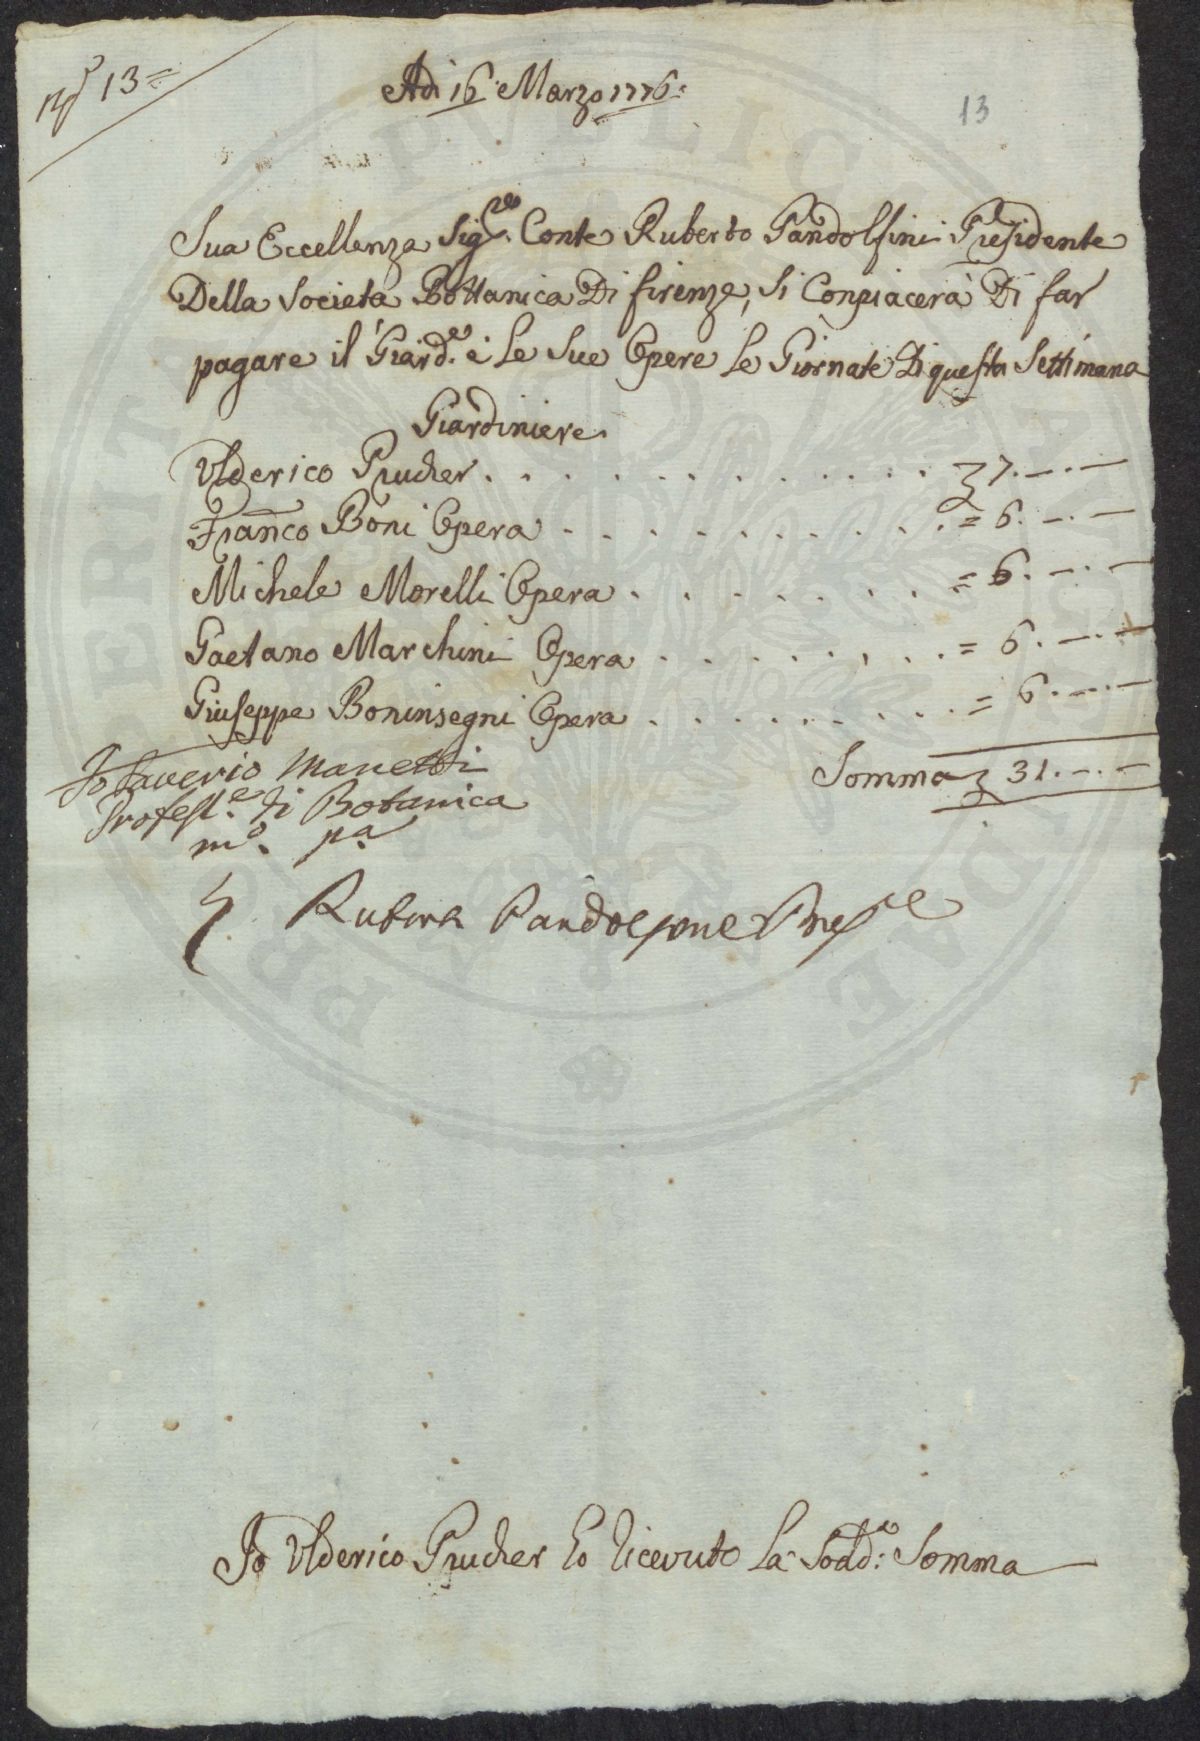 N.º 13=
Adi 16 Marzo 1776:
13
Sua Eccellenza Sigre. Conte Ruberto Pandolfini Presidente
Della Societa Bottanica Di firenze, Si Conpiacerà Di far
pagare il Giarde. e Le Sue Opere Le Giornate Di questa Settimana
Giardiniere
Ulderico Prucher . . . . . . . . . . . . 7.—.—
Franco Boni Opera . . . . . . . . . . = 6.—.—
Michele Morelli Opera . . . . . . . . = 6.—.—
Gaetano Marchini Opera . . . . . . . . = 6.—.—
Giuseppe Boninsegni Opera . . . . . . . . = 6.—.—
Somma 31.—.—
Io Saverio Manetti
Professe. di Botanica
mo. pa
Ruberto Pandolfini Prese
Io Ulderico Prucher Ho Ricevuto La Sodda: Somma